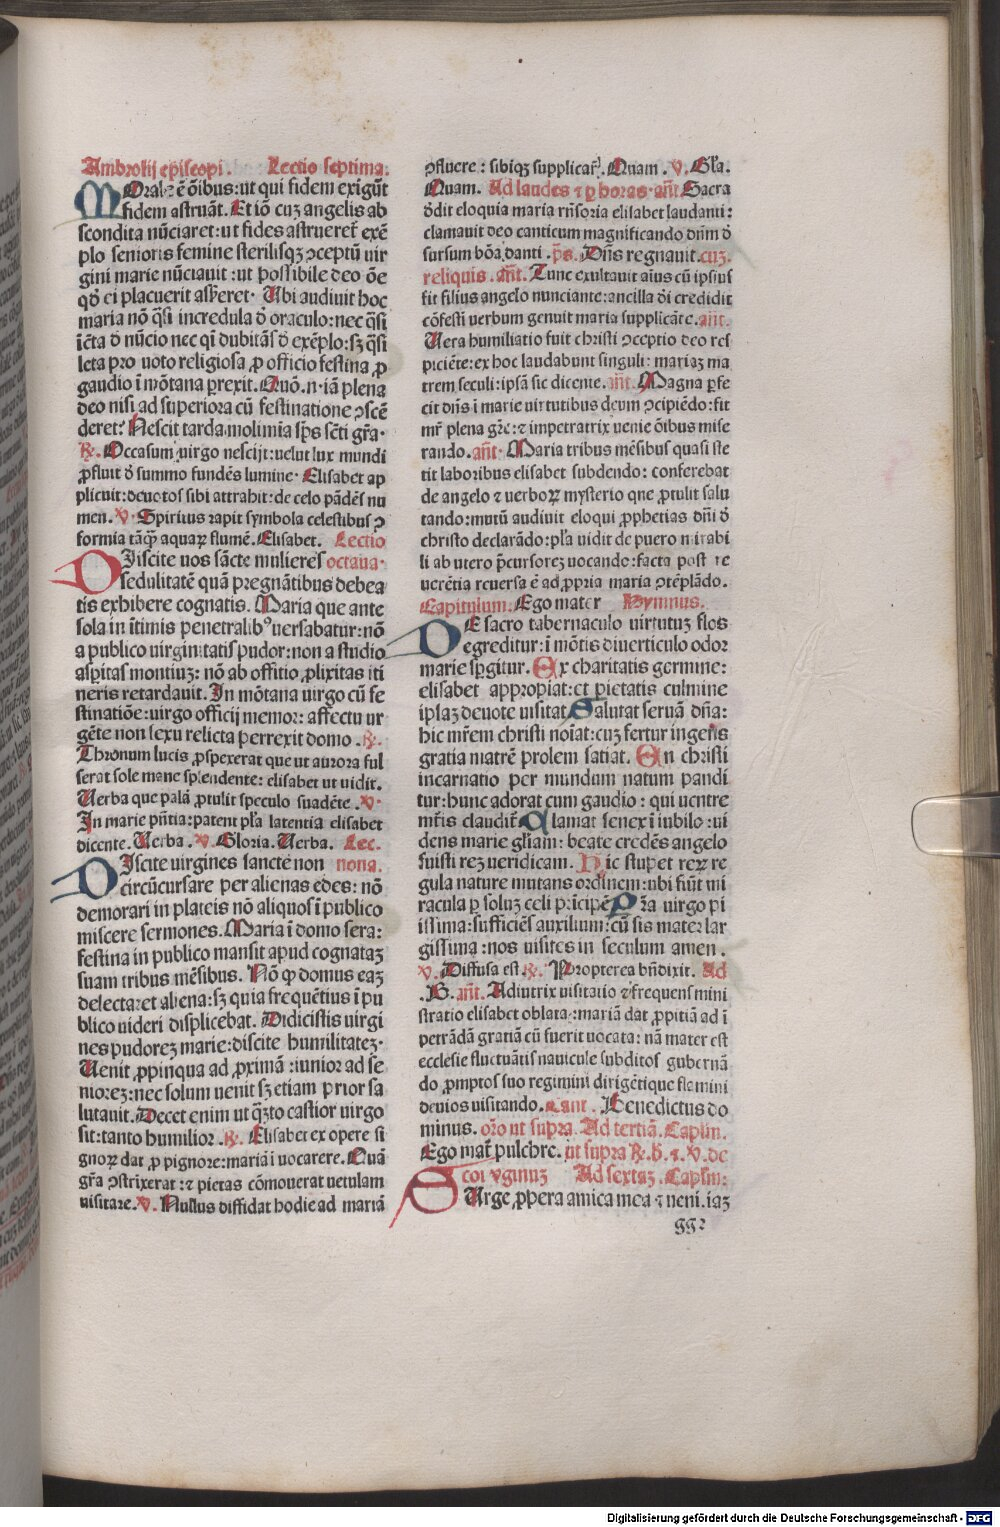 Ambrosij episcopi. Lectio septima.
MOrale ē oībus: ut qui fidem exigūt
fidem astruāt. Et iō cuz angelis ab
scondita nūciaret: ut fides astrueret exē
plo senioris femine sterilisqz ↄceptū uir
gini marie nūciauit: ut possibile deo oē
qd ei placuerit assēret. Ubi audiuit hoc
maria nō qsi incredula d oraculo: nec qsi
īcta d nūcio nec qī dubitās d exēplo: sz qsi
leta pro uoto religiosa ꝓ officio festina ꝓ
gaudio ī mōtana prexit. Quō.n.iā plena
deo nisi ad superiora cū festinatione ↄscē
deret? Nescit tarda molimīa sps sēti gra.
R. Occasum uirgo nescijt: uelut lux mundi
ꝓfluit d summo fundēs lumine. Elisabet ap
plicuit: deuotos sibi attrahit: de celo pādēs nu
men. V. Spiritus rapit symbola celestibus ↄ
formia tāqz aquaꝝ flumē. Elisabet. Lectio
DIscite uos sācte mulieres octaua.
sedulitatē quā pregnātibus debea
tis exhibere cognatis. Maria que ante
sola in ītimis penetralibꝰ uersabatur: nō
a publico uirginitatis pudor: non a studio
aspitas montiuz: nō ab offitio ꝓlixitas iti
neris retardauit. In mōtana uirgo cū fe
stinatiōe: uirgo officij memor: affectu ur
gēte non sexu relicta perrexit domo. R.
Thronum lucis ꝓspexerat que ut aurora ful
serat sole mane splendente: elisabet ut uidit.
Uerba que palā ꝓtulit speculo suadēte. V.
In marie pntia: patent pla latentia elisabet
dicente. Uerba. V. Gloria. Uerba. Lec.
DIscite uirgines sancte non nona.
circūcursare per alienas edes: nō
demorari in plateis nō aliquos ī publico
miscere sermones. Maria ī domo sera:
festina in publico mansit apud cognataz
suam tribus mēsibus. Nō ꝙ domus eaz
delectaret aliena: sz quia frequētius ī pu
blico uideri displicebat. Didicistis uirgi
nes pudorez marie: discite humilitatez.
Uenit ꝓpinqua ad ꝓximā: iunior ad se
niorez: nec solum uenit sz etiam prior sa
lutauit. Decet enim ut qzto castior uirgo
sit: tanto humilior. R. Elisabet ex opere si
gnoꝝ dat ꝓ pignore: mariā ī uocarere. Quā
gra ↄstrixerat: ⁊ pietas cōmouerat uetulam
uisitare. V. Nullus diffidat hodie ad mariā
ↄfluere: sibiqz supplicar̄. Quam. V. Gla.
Quam. Ad laudes ⁊ ꝑ horas. añt. Sacra
ddit eloquia maria rñsoria elisabet laudanti:
clamauit deo canticum magnificando dnm d
sursum bōa danti. ps. Dns regnauit. cuz.
reliquis. añt. Tunc exultauit aīus cū ipsius
fit filius angelo nunciante: ancilla di credidit
cōfesti uerbum genuit maria supplicāte. añt.
Uera humiliatio fuit christi ↄceptio deo res
piciēte: ex hoc laudabunt singuli: mariaz ma
trem seculi: ipsā sic dicente. añt. Magna ꝑfe
cit dns ī marie uirtutibus deum ↄcipiēdo: fit
mr plena gre: ⁊ impetratrix uenie oībus mise
rando. añt. Maria tribus mēsibus quasi ste
tit laboribus elisabet subdendo: conferebat
de angelo ⁊ uerboꝝ mysterio que ꝓtulit salu
tando: mutū audiuit eloqui ꝓphetias dni d
christo declarādo: pla uidit de puero mirabi
li ab utero pcursorez uocando: facta post re
uerētia reuersa ē ad ꝓpria maria ↄtēplādo.
Capitulum. Ego mater Hymnus.
DE sacro tabernaculo uirtutuz flos
egreditur: ī mōtis diuerticulo odor
marie spgitur. Ex charitatis germine:
elisabet appropiat: et pietatis culmine
ipsaz deuote uisitat. Salutat seruā dna:
hic mrem christi noīat: cuz fertur ingens
gratia matrē prolem satiat. En christi
incarnatio per mundum natum pandi
tur: hunc adorat cum gaudio: qui uentre
mtris claudit. Clamat senex ī iubilo: ui
dens marie gliam: beate credēs angelo
fuisti rez ueridicam. Hic stupet reꝝ re
gula nature mutans ordinem: ubi fiūt mi
racula ꝑ soluz celi prīcipē. Pra uirgo pi
issima: sufficiēs auxilium: cū sis mater lar
gissima: nos uisites in seculum amen.
V. Diffusa est. R. Propterea bndixit. Ad
.B. añt. Adiutrix uisitatio ⁊ frequens mini
stratio elisabet oblata: mariā dat ꝓpitiā ad ī
petrādā gratiā cū fuerit uocata: nā mater est
ecclesie fluctuātis nauicule subditos gubernā
do ꝓmptos suo regimini dirigētique flamini
deuios uisitando. Cant. Benedictus do
minus. oro ut supra. Ad tertiā. Caplm.
Ego mat pulchre. ut supra R. b. ⁊. V. de
scoi vginuz Ad sextaz. Caplm:
SUrge ꝓpera amica mea ⁊ ueni. iaz
gg2
Digitalisierung gefördert durch die Deutsche Forschungsgemeinschaft - DFG